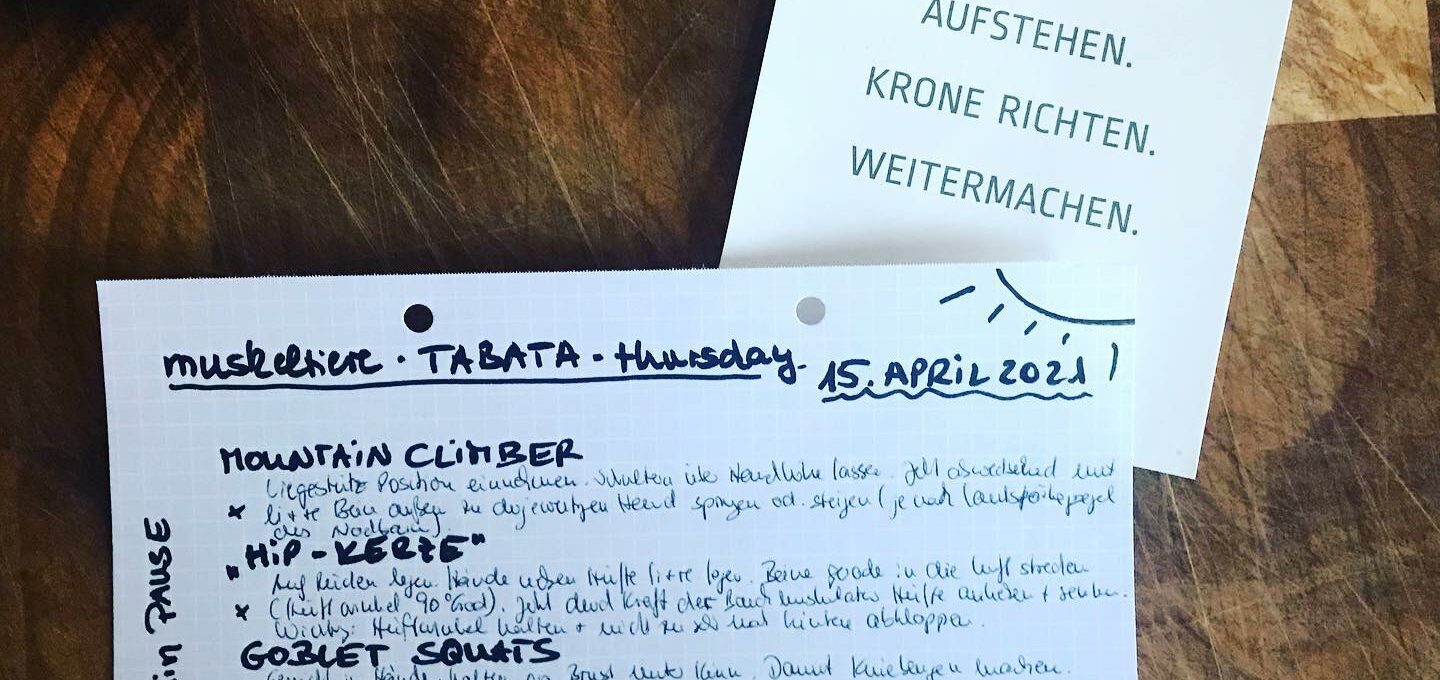 AUFSTEHEN.
KRONE RICHTEN.
WEITERMACHEN.
muskeltiere · TABATA - thursday
15. APRiL 2021
MOUNTAiN CLiMBER
Liegestütz Position einnehmen. Schultern über Handlinie lassen. Jetzt abwechselnd mit
x li+re Bein außen zu dojeweiligen Hand springen od. steigen (je nach Lautstärkepegel
des
„HiP-KERZE"
Auf legen. Hände neben Hüfte li+re legen. Beine gerade in die Luft strecken
x (Hüftwinkel 90°Grad). Jetzt durch Kraft der Bauchmuskulatur Hüfte anheben + senken.
Wichtig: Hüftwinkel halten + nicht zu nach hinten abklappen.
GOBLET SQUATS
Hände halten Brust unter Kinn. Damit Kniebeugen machen.
PAUSE